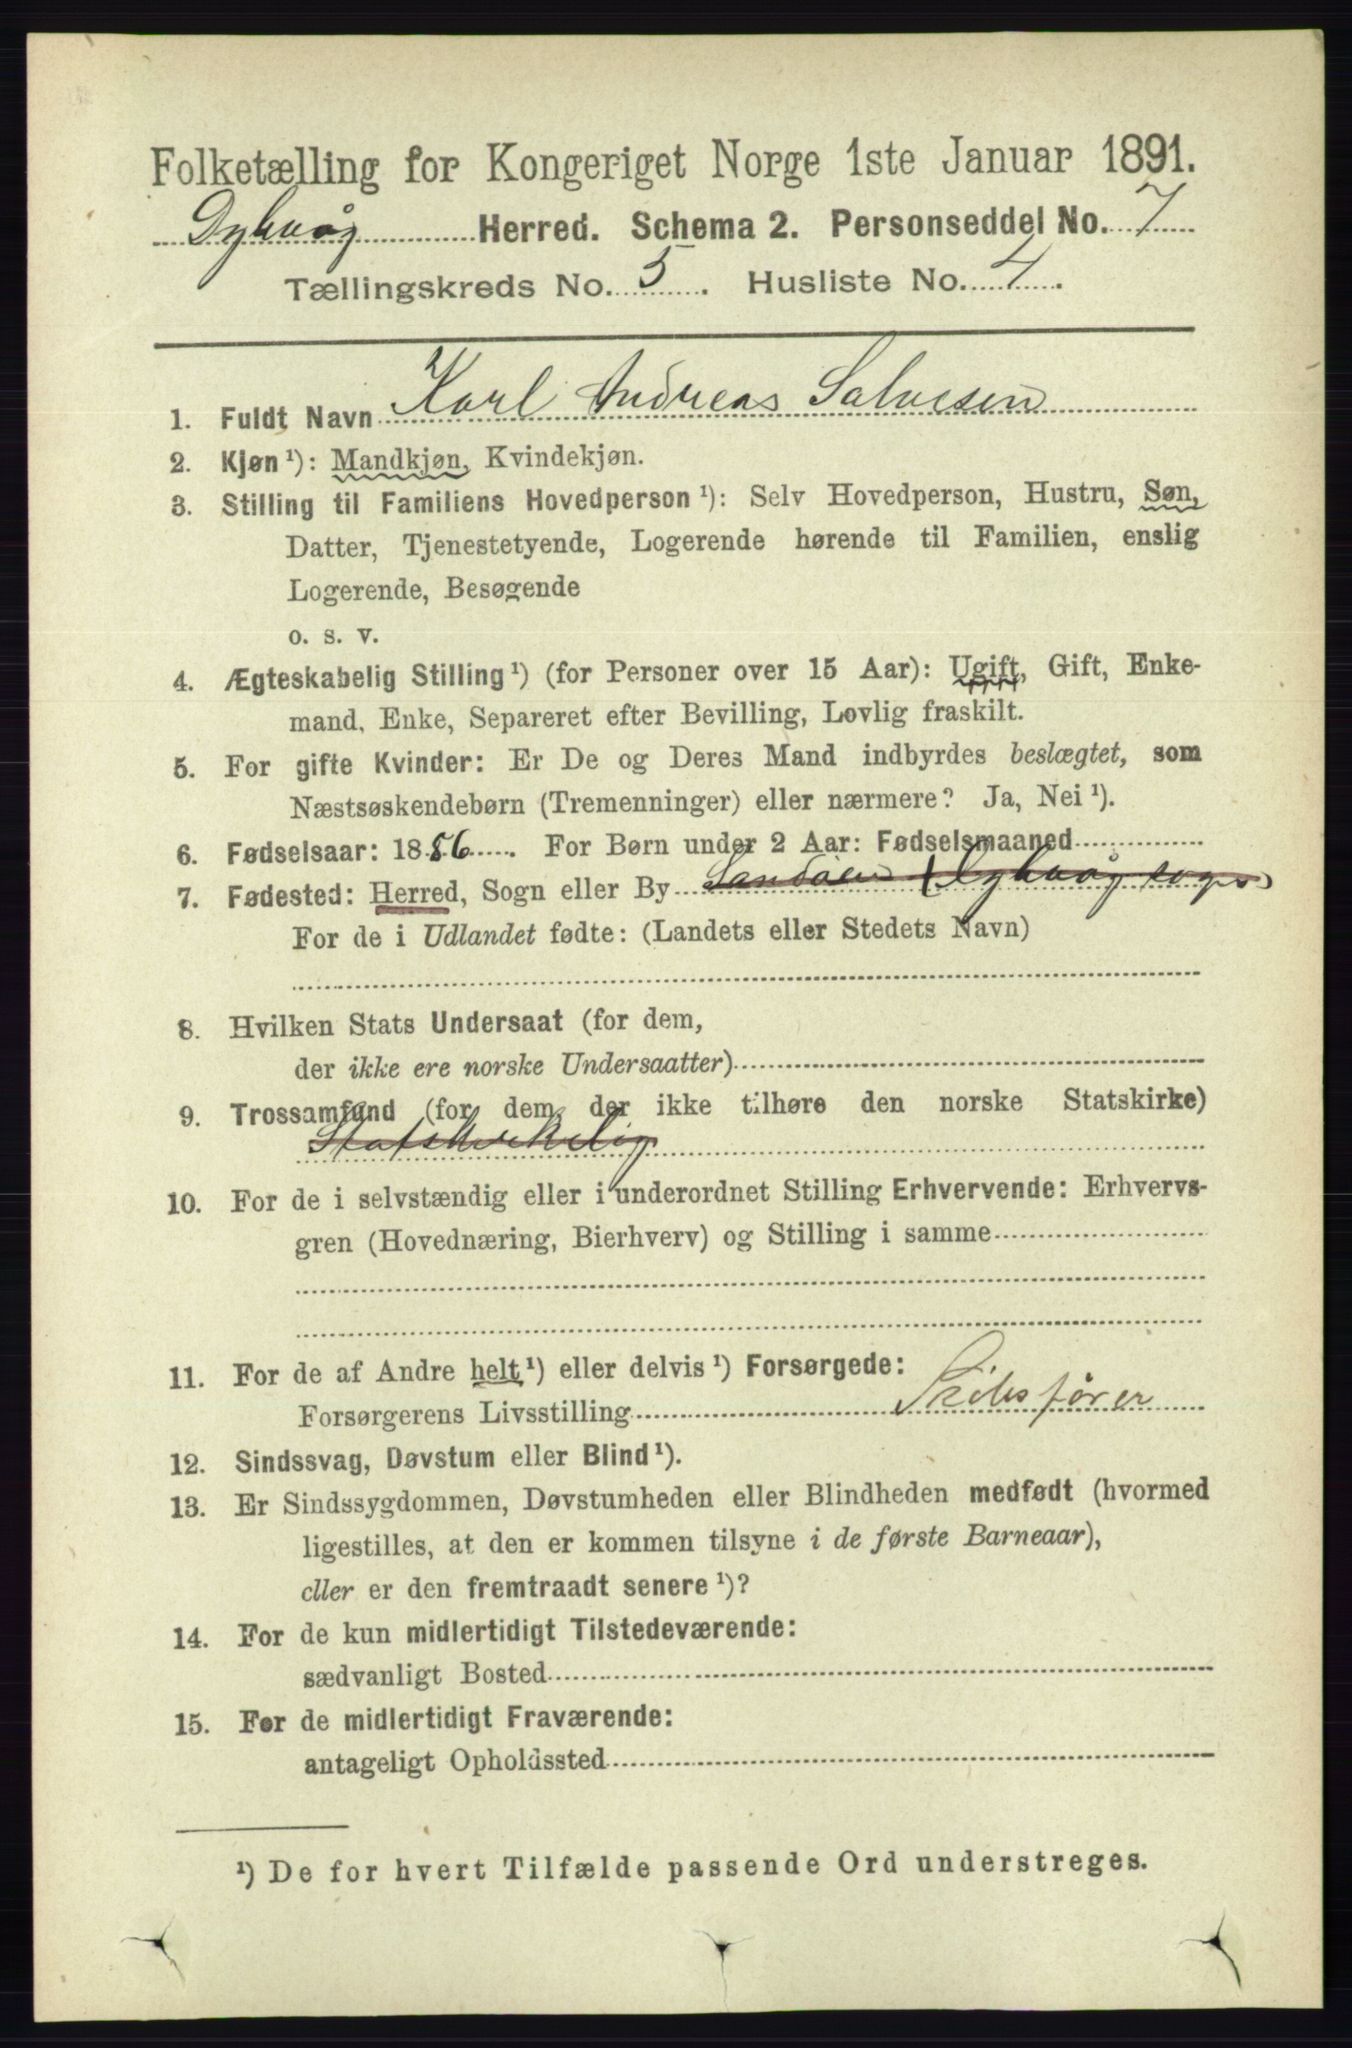 Folketælling for Kongeriget Norge 1ste Januar 1891.
Dybvåg Herred. Schema 2. Personseddel No. 7
Tællingskreds No. 5. Husliste No. 4.
1. Fuldt Navn Karl Andreas Salvesen
2. Kjøn ¹): Mandkjøn, Kvindekjøn.
3. Stilling til Familiens Hovedperson ¹): Selv Hovedperson, Hustru, Søn,
Datter, Tjenestetyende, Logerende hørende til Familien, enslig
Logerende, Besøgende
o. s. v.
4. Ægteskabelig Stilling ¹) (for Personer over 15 Aar): Ugift, Gift, Enke-
mand, Enke, Separeret efter Bevilling, Lovlig fraskilt.
5. For gifte Kvinder: Er De og Deres Mand indbyrdes beslægtet, som
Næstsøskendebørn (Tremenninger) eller nærmere? Ja, Nei ¹).
6. Fødselsaar: 1886. For Børn under 2 Aar: Fødselsmaaned
7. Fødested: Herred, Sogn eller By Sandøen (Dybvåg sogn)
For de i Udlandet fødte: (Landets eller Stedets Navn)
8. Hvilken Stats Undersaat (for dem,
der ikke ere norske Undersaatter)
9. Trossamfund (for dem, der ikke tilhøre den norske Statskirke)
Statskirkelig
10. For de i selvstændig eller i underordnet Stilling Erhvervende: Erhvervs-
gren (Hovednæring, Bierhverv) og Stilling i samme
11. For de af Andre helt ¹) eller delvis ¹) Forsørgede:
Forsørgerens Livsstilling Skibsfører
12. Sindssvag, Døvstum eller Blind ¹).
13. Er Sindssygdommen, Døvstumheden eller Blindheden medfødt (hvormed
ligestilles, at den er kommen tilsyne i de første Barneaar),
cller er den fremtraadt senere ¹)?
14. For de kun midlertidigt Tilstedeværende:
sædvanligt Bosted
15. For de midlertidigt Fraværende:
antageligt Opholdssted
¹) De for hvert Tilfælde passende Ord understreges.